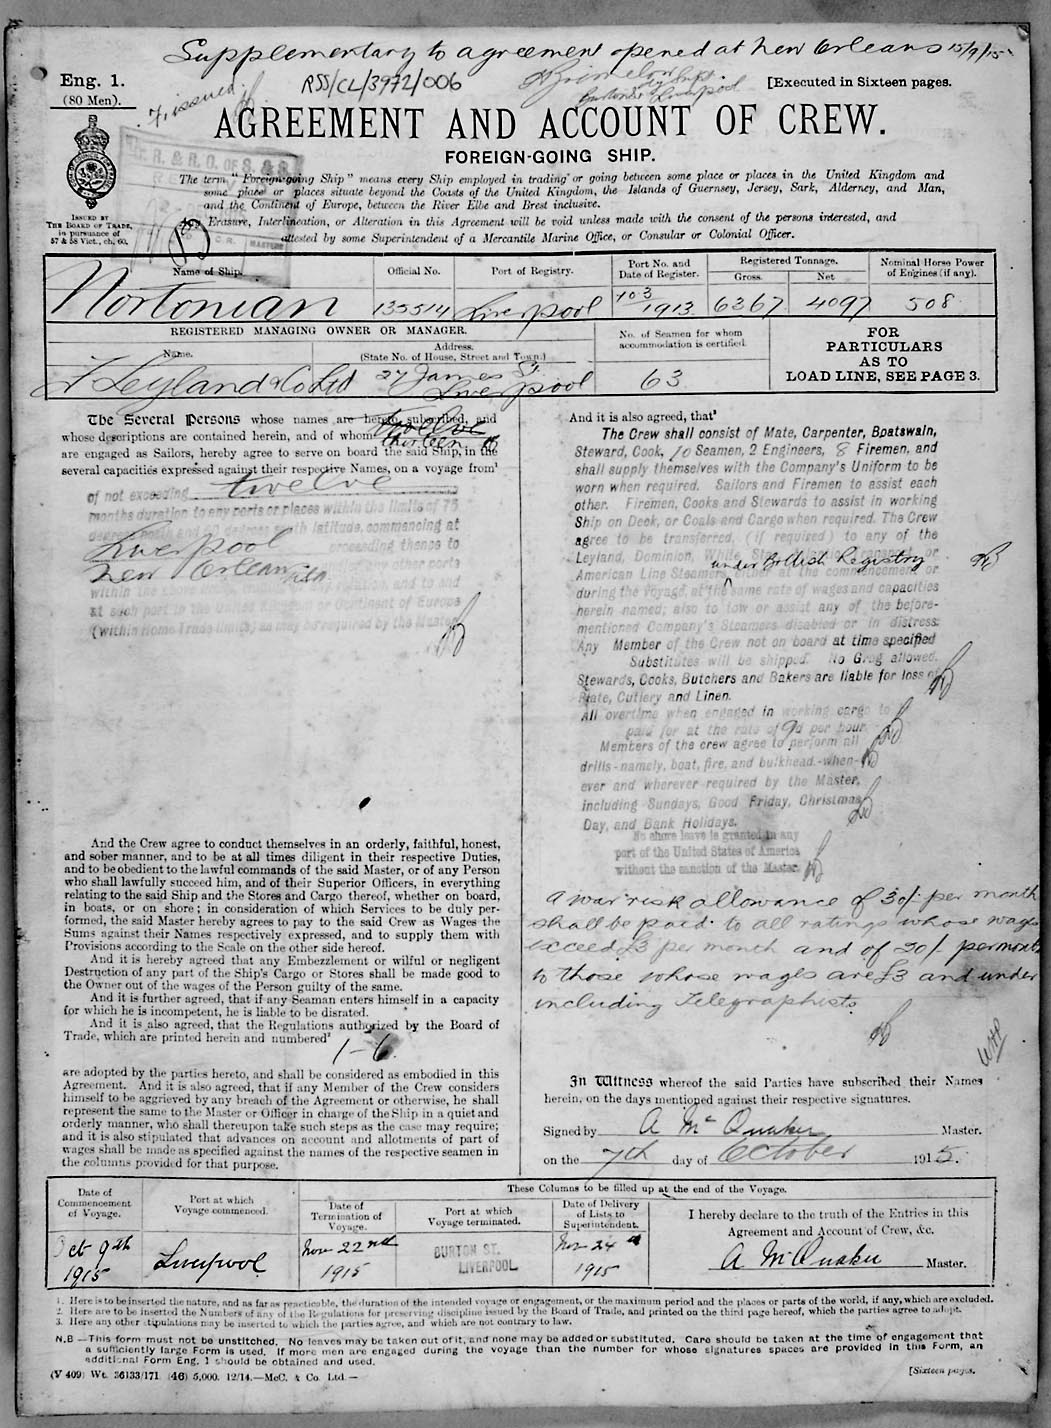 Supplementary to agreement opened at New Orleans 15/9/15
Eng. 1.
(80 Men).
7. issued
RSS/CL/3972/006
Liverpool
[Executed in Sixteen pages.
AGREEMENT AND ACCOUNT OF CREW.
FOREIGN-GOING SHIP.
ISSUED BY
THE BOARD OF TRADE,
in pursuance of
57 & 58 Vict., ch. 60.
The term "Foreign-going Ship" means every Ship employed in trading or going between some place or places in the United Kingdom and
some place or places situate beyond the Coasts of the United Kingdom, the Islands of Guernsey, Jersey, Sark, Alderney, and Man,
and the Continent of Europe, between the River Elbe and Brest inclusive.
Erasure, Interlineation, or Alteration in this Agreement will be void unless made with the consent of the persons interested, and
attested by some Superintendent of a Mercantile Marine Office, or Consular or Colonial Officer.
R. & R. O. OF S. & S.
13
Name of Ship. Official No. Port of Registry. Port No. and Date of Register. Registered Tonnage. Gross. Net Nominal Horse Power of Engines (if any).
Nortonian 135514 Liverpool 103 1913 6367 4097 508
REGISTERED MANAGING OWNER OR MANAGER.
Name. Address. (State No. of House, Street and Town.)
No. of Seamen for whom accommodation is certified.
FOR
PARTICULARS
AS TO
LOAD LINE, SEE PAGE 3.
F Leyland & Co Ltd 27 James St. Liverpool 63
The Several Persons whose names are hereto subscribed, and
whose descriptions are contained herein, and of whom twelve thirteen
are engaged as Sailors, hereby agree to serve on board the said Ship, in the
several capacities expressed against their respective Names, on a voyage from¹
of not exceeding twelve
months duration to any ports or places within the limits of 75
degrees north and 60 degrees south latitude, commencing at
Liverpool proceeding thence to
New Orleans USA any other ports
within the above
at such port in the United Kingdom or Continent of Europe
(within Home Trade limits) as may be required by the Master
And the Crew agree to conduct themselves in an orderly, faithful, honest,
and sober manner, and to be at all times diligent in their respective Duties,
and to be obedient to the lawful commands of the said Master, or of any Person
who shall lawfully succeed him, and of their Superior Officers, in everything
relating to the said Ship and the Stores and Cargo thereof, whether on board,
in boats, or on shore; in consideration of which Services to be duly per-
formed, the said Master hereby agrees to pay to the said Crew as Wages the
Sums against their Names respectively expressed, and to supply them with
Provisions according to the Scale on the other side hereof.
And it is hereby agreed that any Embezzlement or wilful or negligent
Destruction of any part of the Ship's Cargo or Stores shall be made good to
the Owner out of the wages of the Person guilty of the same.
And it is further agreed, that if any Seaman enters himself in a capacity
for which he is incompetent, he is liable to be disrated.
And it is also agreed, that the Regulations authorized by the Board of
Trade, which are printed herein and numbered²
1-6.
are adopted by the parties hereto, and shall be considered as embodied in this
Agreement. And it is also agreed, that if any Member of the Crew considers
himself to be aggrieved by any breach of the Agreement or otherwise, he shall
represent the same to the Master or Officer in charge of the Ship in a quiet and
orderly manner, who shall thereupon take such steps as the case may require;
and it is also stipulated that advances on account and allotments of part of
wages shall be made as specified against the names of the respective seamen in
the columns provided for that purpose.
And it is also agreed, that³
The Crew shall consist of Mate, Carpenter, Boatswain,
Steward, Cook, 10 Seamen, 2 Engineers, 8 Firemen, and
shall supply themselves with the Company's Uniform to be
worn when required. Sailors and Firemen to assist each
other. Firemen, Cooks and Stewards to assist in working
Ship on Deck, or Coals and Cargo when required. The Crew
agree to be transferred, (if required) to any of the
Leyland, Dominion, White Star, or
under British Registry
American Line Steamers, either at the commencement or
during the voyage, at the same rate of wages and capacities
herein named; also to tow or assist any of the before-
mentioned Company's Steamers disabled or in distress.
Any Member of the Crew not on board at time specified
Substitutes will be shipped. No Grog allowed.
Stewards, Cooks, Butchers and Bakers are liable for loss of
Plate, Cutlery and Linen.
All overtime when engaged in working cargo to
paid for at the rate of 9d per hour
Members of the crew agree to perform all
drills-namely, boat, fire, and bulkhead-when-
ever and wherever required by the Master,
including Sundays, Good Friday, Christmas
Day, and Bank Holidays.
No shore leave is granted in any
part of the United States of America
without the sanction of the Master.
A war risk allowance of 30/- per month
shall be paid to all ratings whose wages
exceed £3 per month and of 20/- per month
to those whose wages are £3 and under
including Telegraphists.
In Witness whereof the said Parties have subscribed their Names
herein, on the days mentioned against their respective signatures.
Signed by A McQuaker Master.
on the 7th day of October 1915.
Date of Commencement of Voyage. Port at which Voyage commenced.
These Columns to be filled up at the end of the Voyage.
Date of Termination of Voyage. Port at which Voyage terminated. Date of Delivery of Lists to Superintendent.
I hereby declare to the truth of the Entries in this
Agreement and Account of Crew, &c.
Oct 9th 1915 Liverpool Nov 22nd 1915 BURTON ST. LIVERPOOL. Nov 24th 1915
A McQuaker Master.
1. Here is to be inserted the nature, and as far as practicable, the duration of the intended voyage or engagement, or the maximum period and the places or parts of the world, if any, which are excluded.
2. Here are to be inserted the Numbers of any of the Regulations for preserving discipline issued by the Board of Trade, and printed on the third page hereof, which the parties agree to adopt.
3. Here any other stipulations may be inserted to which the parties agree, and which are not contrary to law.
N.B—This form must not be unstitched. No leaves may be taken out of it, and none may be added or substituted. Care should be taken at the time of engagement that
a sufficiently large Form is used. If more men are engaged during the voyage than the number for whose signatures spaces are provided in this Form, an
additional Form Eng. 1 should be obtained and used.
(V 409) Wt. 36133/171 (46) 5,000. 12/14.—McC. & Co. Ltd.—
[Sixteen pages.